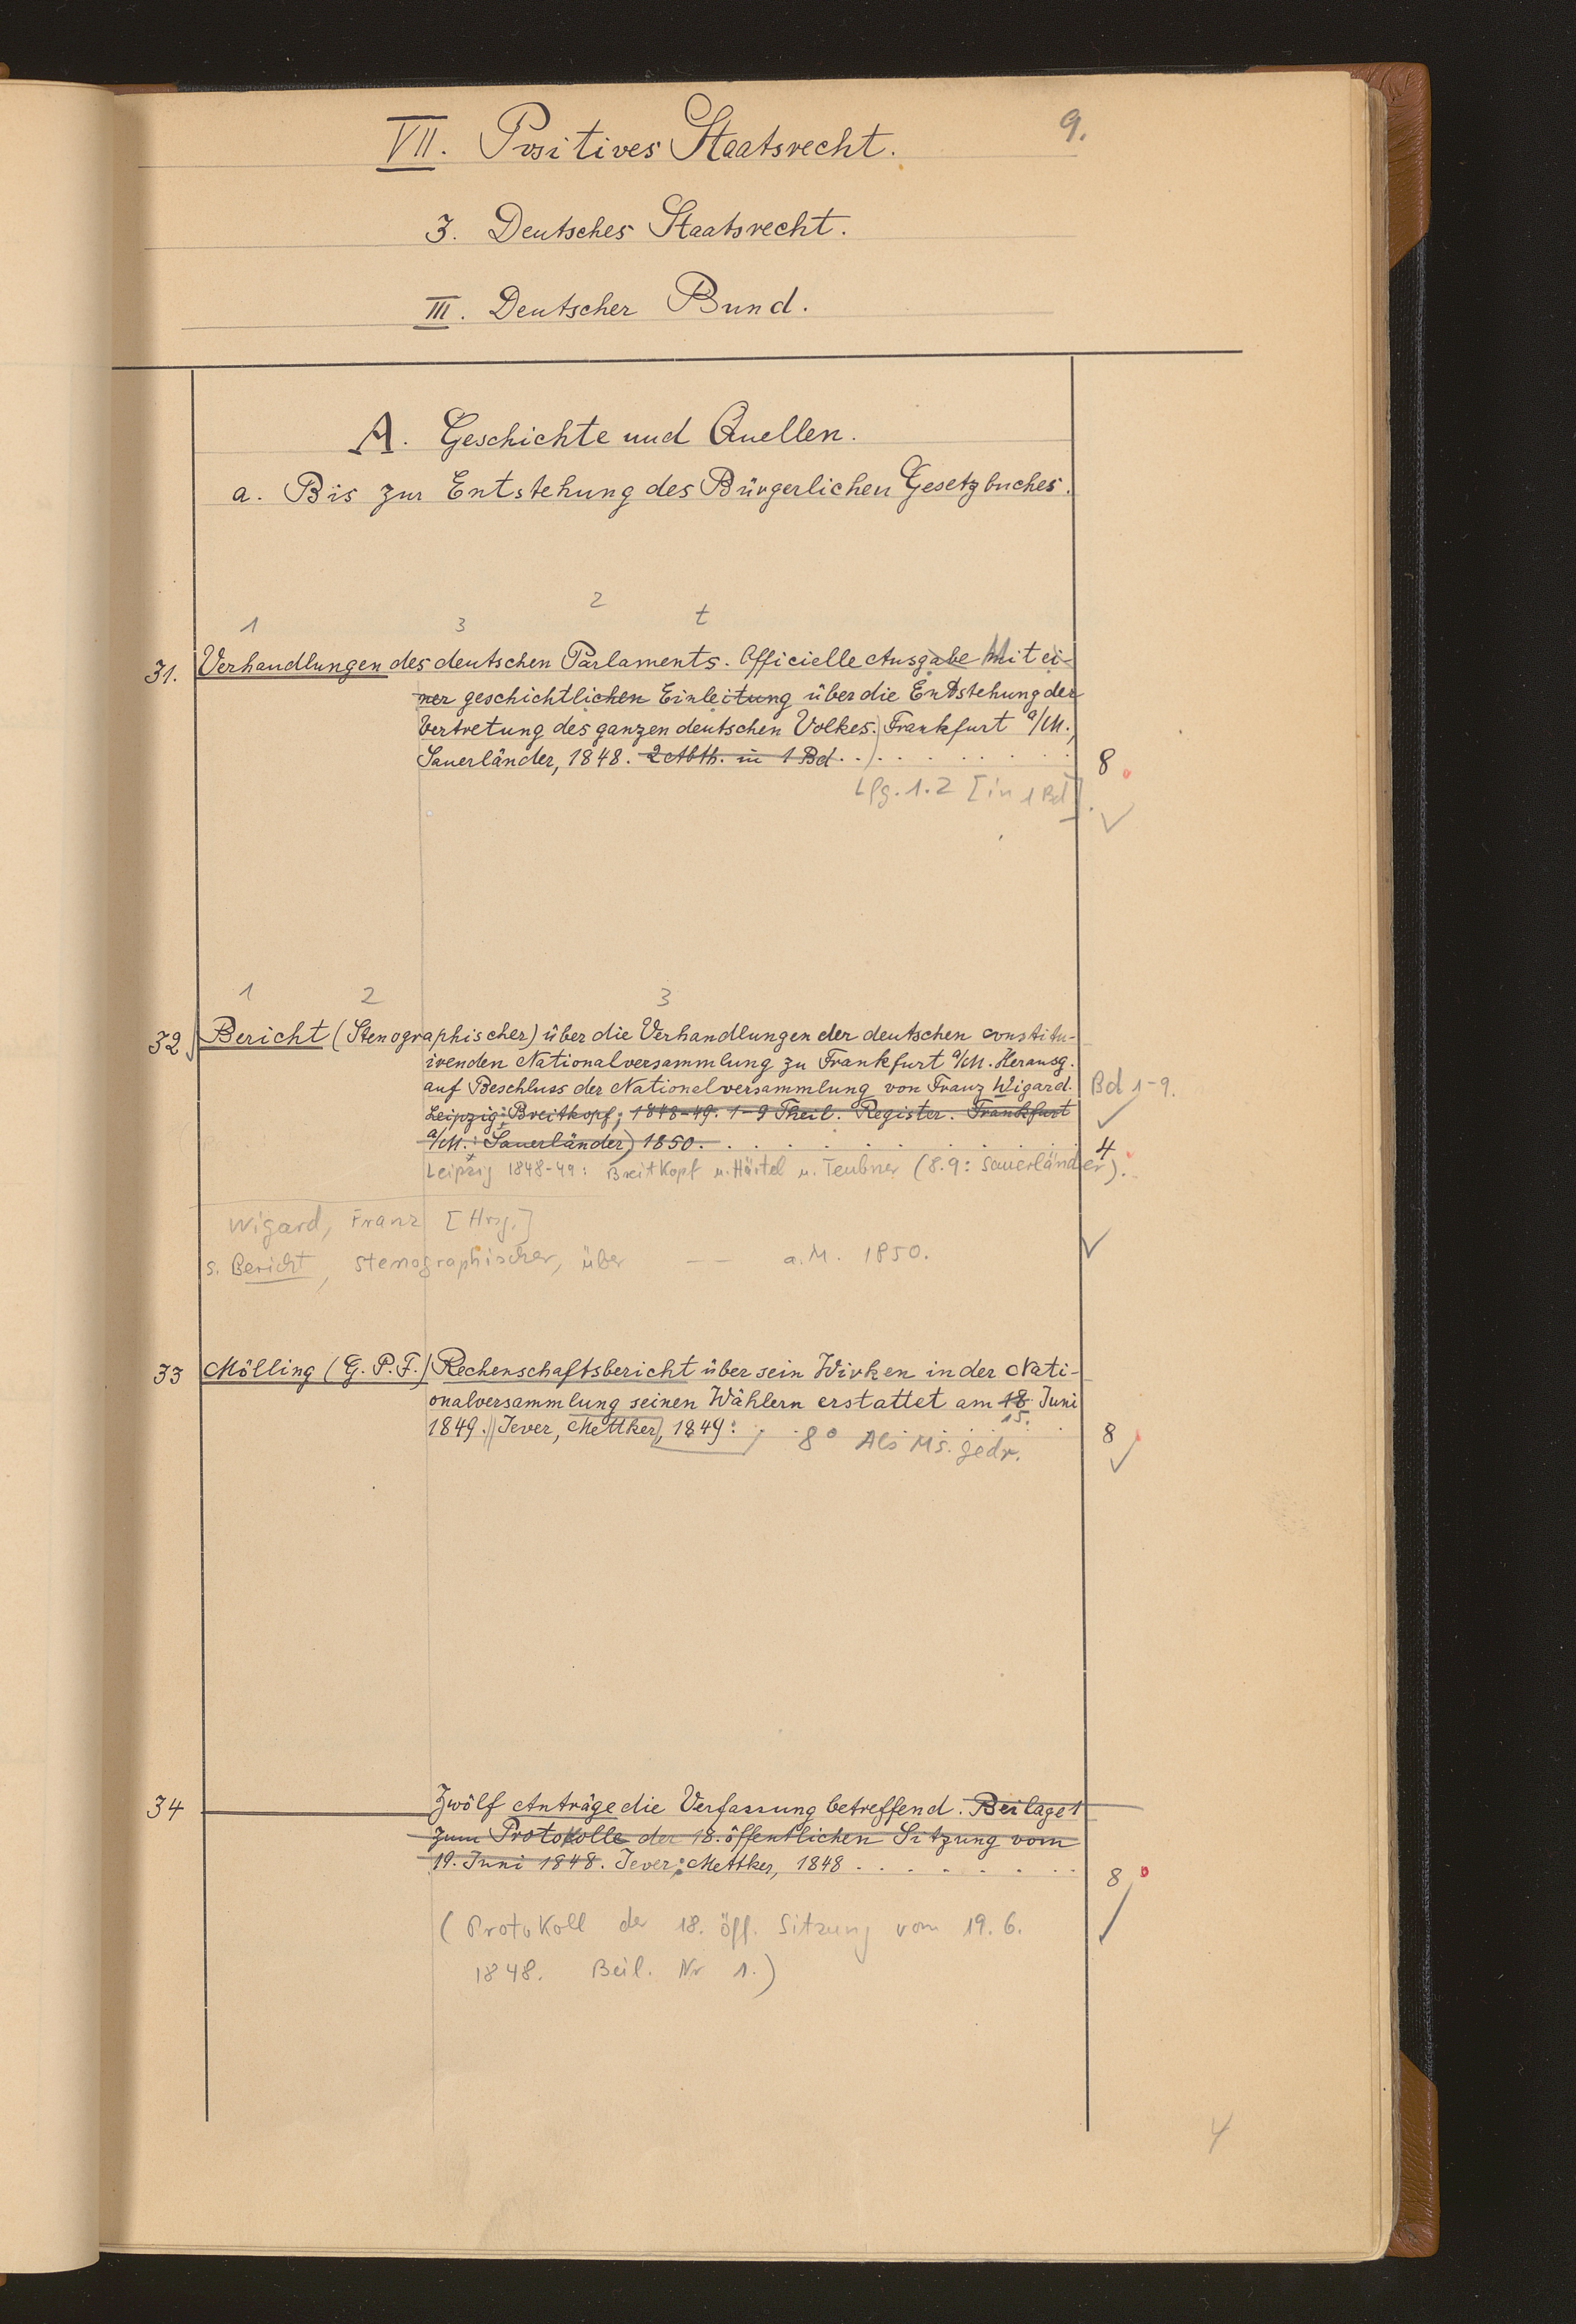 VII. Positives Staatsrecht. 9.
3. Deutsches Staatsrecht.
III. Deutscher Bund.
A. Geschichte und Quellen.
a. Bis zur Entstehung des Bürgerlichen Gesetzbuches.
1 3 2 t
31. Verhandlungen des deutschen Parlaments. Officielle Ausgabe Mit ei-
ner geschichtlichen Einleitung über die Entstehung der
Vertretung des ganzen deutschen Volkes. Frankfurt a/M.,
Sauerländer, 1848. 2 Abth. in 1 Bd. . . . . . . . . 8
Lfg. 1.2 [in 1 Bd].
1 2 3
32 Bericht (Stenographischer) über die Verhandlungen der deutschen constitu-
irenden Nationalversammlung zu Frankfurt a/M. Herausg.
auf Beschluss der Nationalversammlung von Franz Wigard. Bd 1-9.
Leipzig: Breitkopf, 1848-49. 1-9 Theil. Register. Frankfurt
a/M.: Sauerländer, 1850. . . . . . . . . . 4
Leipzig 1848-49: Breitkopf u. Härtel u. Teubner (8.9: Sauerländer).
Wigard, Franz [Hrsg.]
s. Bericht, stenographischer, über — — a.M. 1850.
33 Mölling (G. P. F.) Rechenschaftsbericht über sein Wirken in der Nati-
onalversammlung seinen Wählern erstattet am 18 Juni
15.
1849. Jever, Mettker, 1849: 8° Als Ms. gedr. 8
34 Zwölf Anträge die Verfassung betreffend. Beilage 1
zum Protokolle der 18. öffentlichen Sitzung vom
19. Juni 1848. Jever: Mettker, 1848 . . . . . . . 8
(Protokoll der 18. öff. Sitzung vom 19. 6.
1848. Beil. Nr 1.)
4